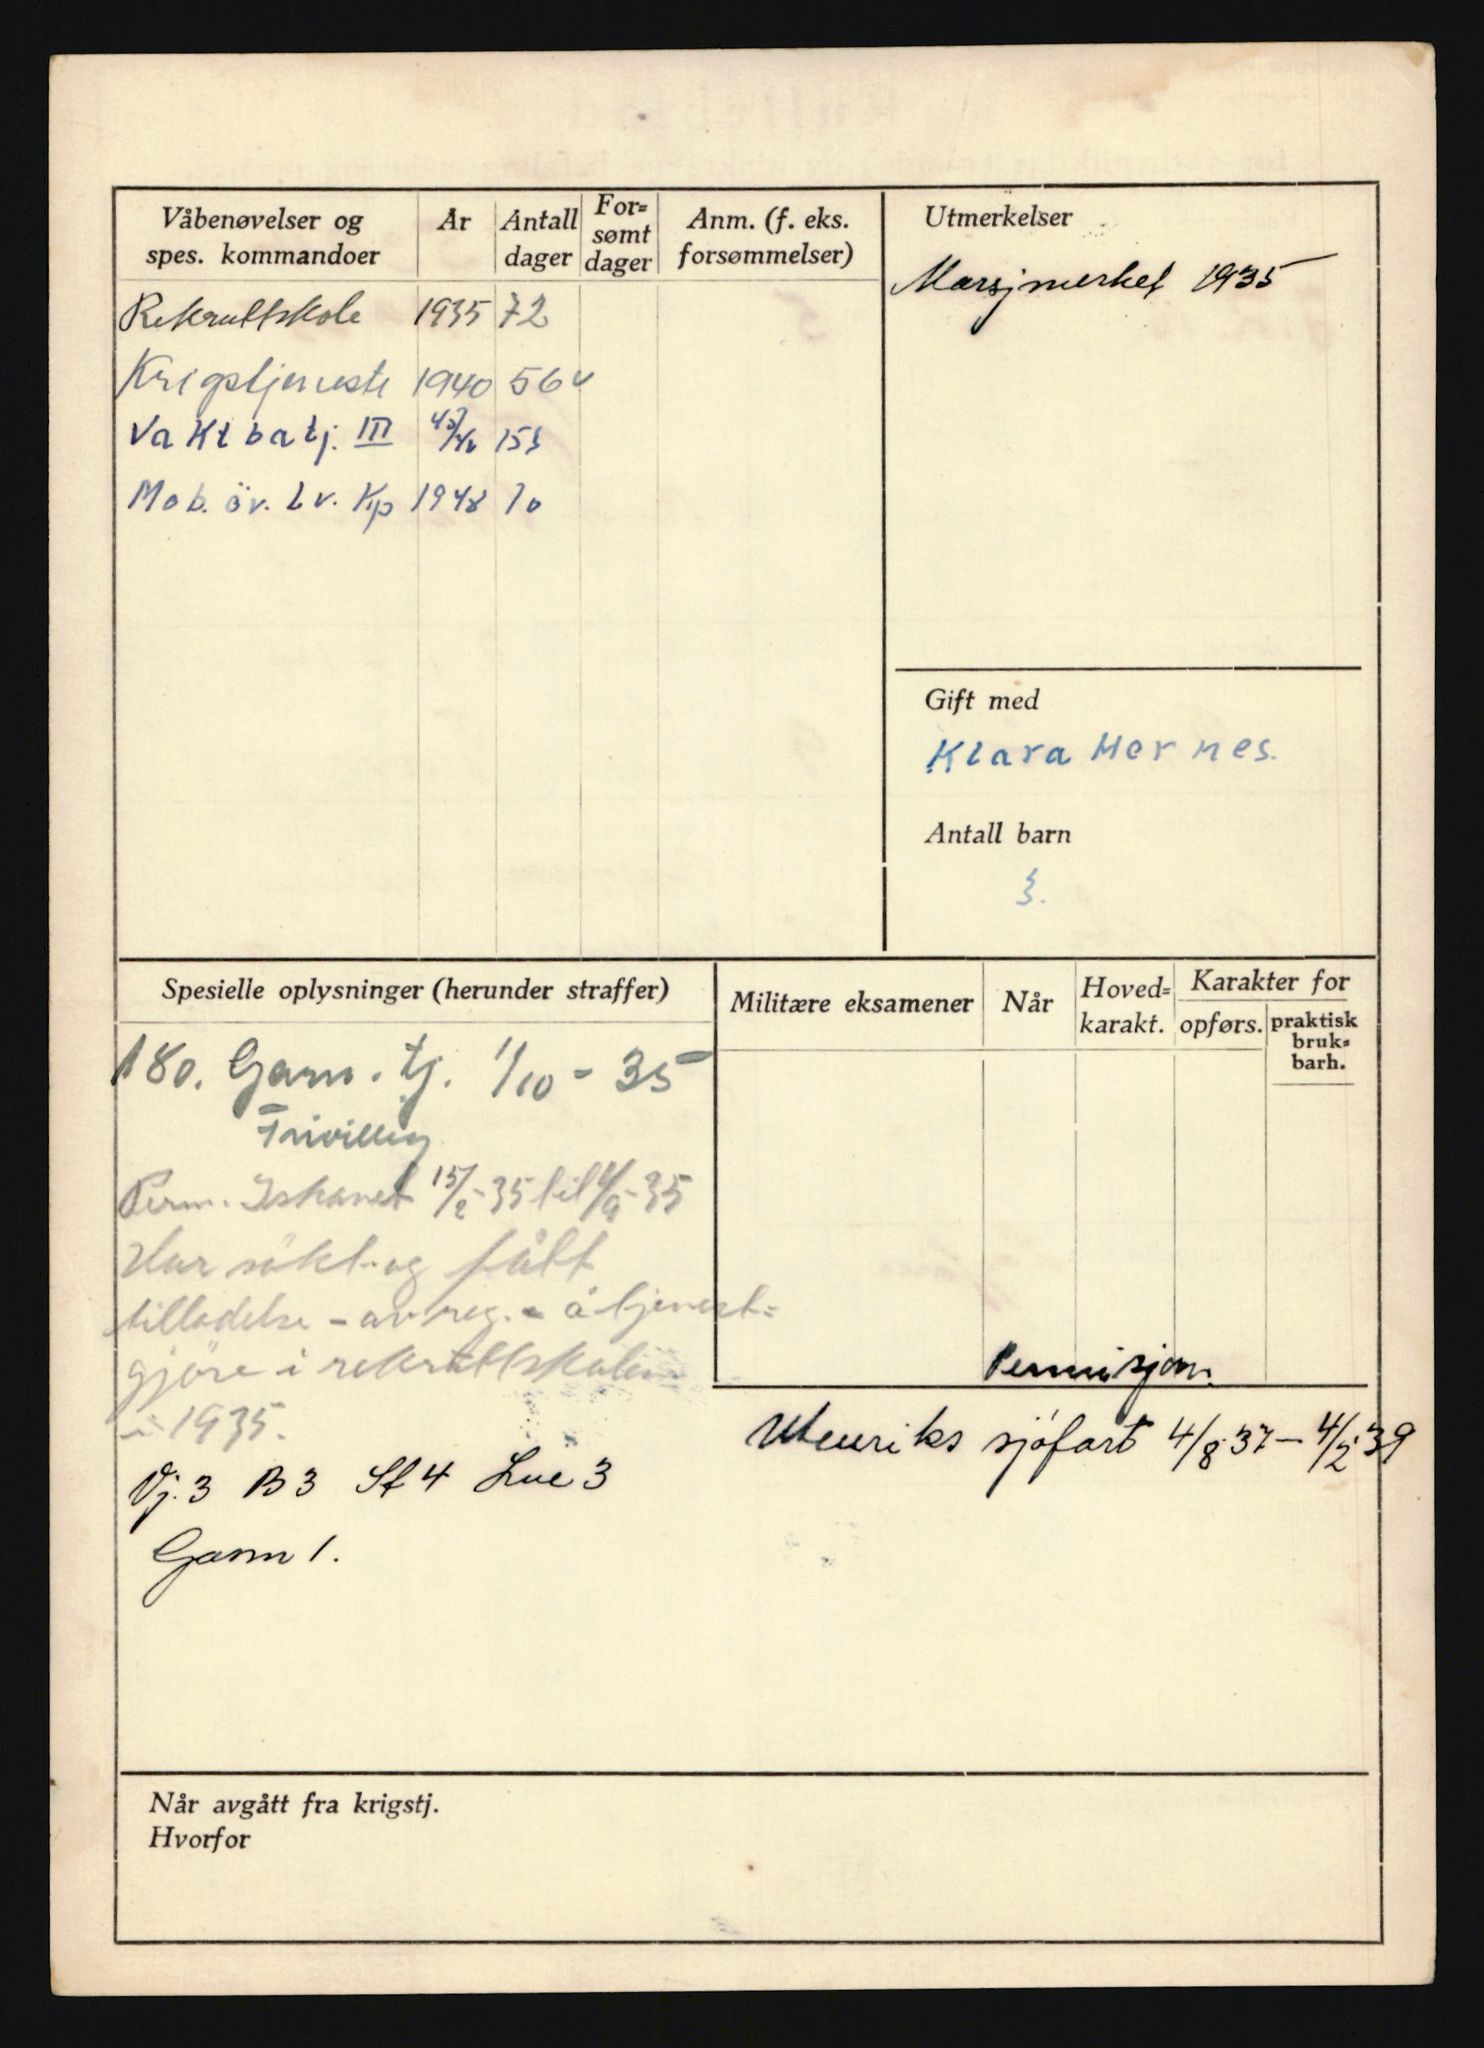 Våbenøvelser og
spes. kommandoer
År
Antall
dager
For=
sømt
dager
Anm. (f. eks.
forsømmelser)
Utmerkelser
Rekruttskole 1935 72
Krigstjeneste 1940 56
Vaktbatj. III 45/46 153
Mob. öv. Lv. Kp 1948 10
Marsjmerket 1935
Gift med
Klara Hernes.
Antall barn
3.
Spesielle oplysninger (herunder straffer)
180. Garn. tj. 1/10 - 35
Frivillig
Perm. Ishavet 15/2-35 til 1/9-35
Har søkt og fått
tilladelse - av reg. - å tjenest=
gjöre i rekruttskolen
i 1935.
Vj. 3 B 3 Sf 4 Lue 3
Garn 1.
Militære eksamener
Når
Hoved=
karakt.
Karakter for
opførs.
praktisk
bruk=
barh.
Permisjon.
Utenriks sjöfart 4/8 37 - 4/2 39
Når avgått fra krigstj.
Hvorfor